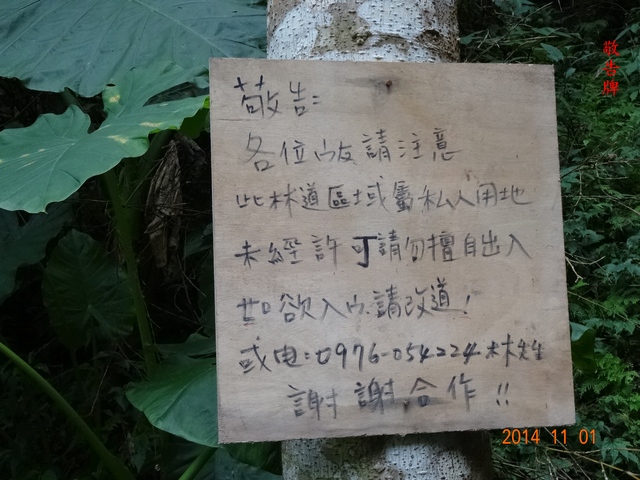 敬告:
各位山友請注意
此林道區域屬私人用地
未經許可請勿擅自出入
如欲入山請改道!
或电:0976-054224林先生
謝謝合作!!
敬告牌
2014 11 01